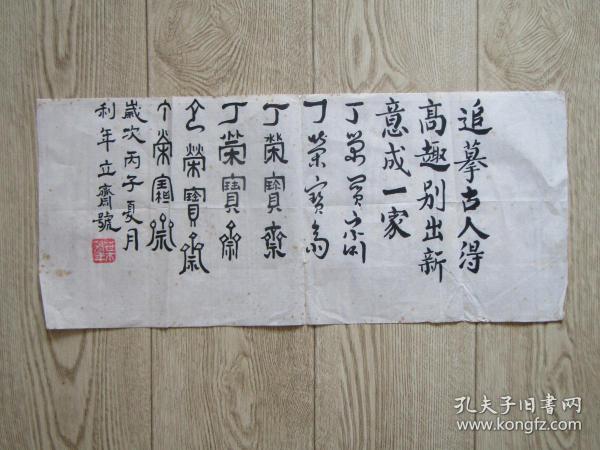 追摹古人得
高趣别出新
意成一家
丁榮寶齋
丁榮寶齋
丁榮寶齋
丁榮寶齋
榮寶齋
榮寶齋
歲次丙子夏月
利年立齋號
孔夫子旧书网
www.kongfz.com